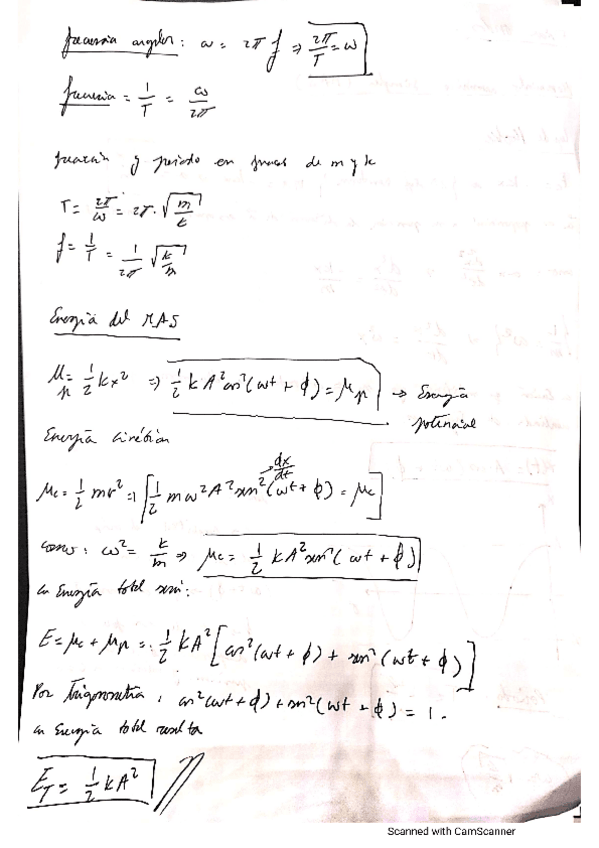 frecuencia angular: ω = 2π f ⇒ 2π/T = ω
frecuencia = 1/T = ω/2π
frecuencia y periodo en de m y k
T = 2π/ω = 2π · √(m/k)
f = 1/T = 1/2π √(k/m)
Energía del MAS
μp = 1/2 kx² ⇒ 1/2 k A² cos²(ωt + ϕ) = μp → Energía
potencial
Energía cinética
dx/dt
μc = 1/2 mv² = 1/2 m ω² A² sen²(ωt + ϕ) = μc
como: ω² = k/m ⇒ μc = 1/2 k A² sen²(ωt + ϕ)
La Energía total será:
E = μc + μp = 1/2 k A² [cos²(ωt + ϕ) + sen²(ωt + ϕ)]
Por trigonometría, cos²(ωt + ϕ) + sen²(ωt + ϕ) = 1.
La Energía total resulta
E_T = 1/2 k A²
Scanned with CamScanner